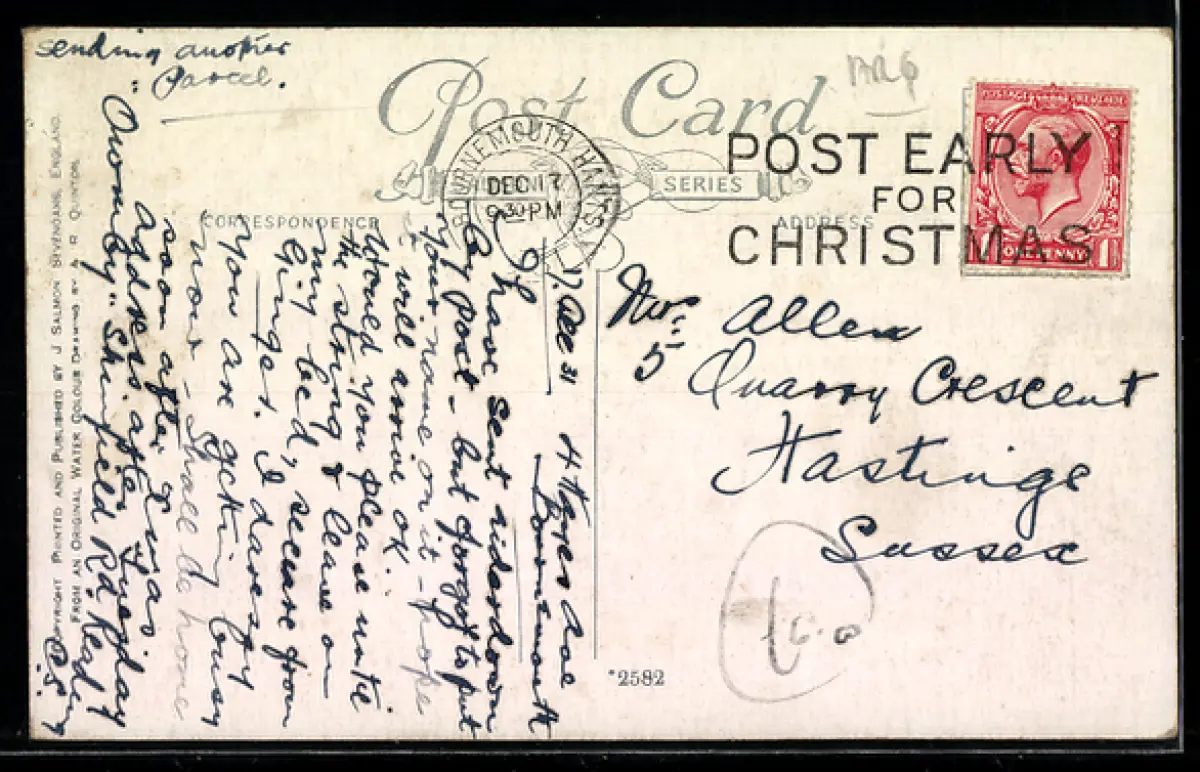 Post Card
BOURNEMOUTH HANTS.
DEC 17
9 30 PM
POST EARLY
FOR
CHRISTMAS
POSTAGE REVENUE
1 ONE PENNY 1
SERIES
CORRESPONDENCE
ADDRESS
4 Hayes Ave
Bournemouth
17. Dec 31
I have sent eiderdown
by post - but forgot to put
your name on it - hope
it will arrive ok.
Would you please untie
the string & leave on
my bed, secure from
Ginger. I daresay
you are getting busy
now - Shall be home
soon after Xmas
address after Tuesday
"Ownnby" Shinfield Rd. Reading
P.S.
sending another
parcel.
Mr. Allen
5 Quarry Crescent
Hastings
Sussex
*2582
COPYRIGHT PRINTED AND PUBLISHED BY J SALMON SEVENOAKS, ENGLAND.
FROM AN ORIGINAL WATER COLOUR DRAWING BY A R QUINTON.